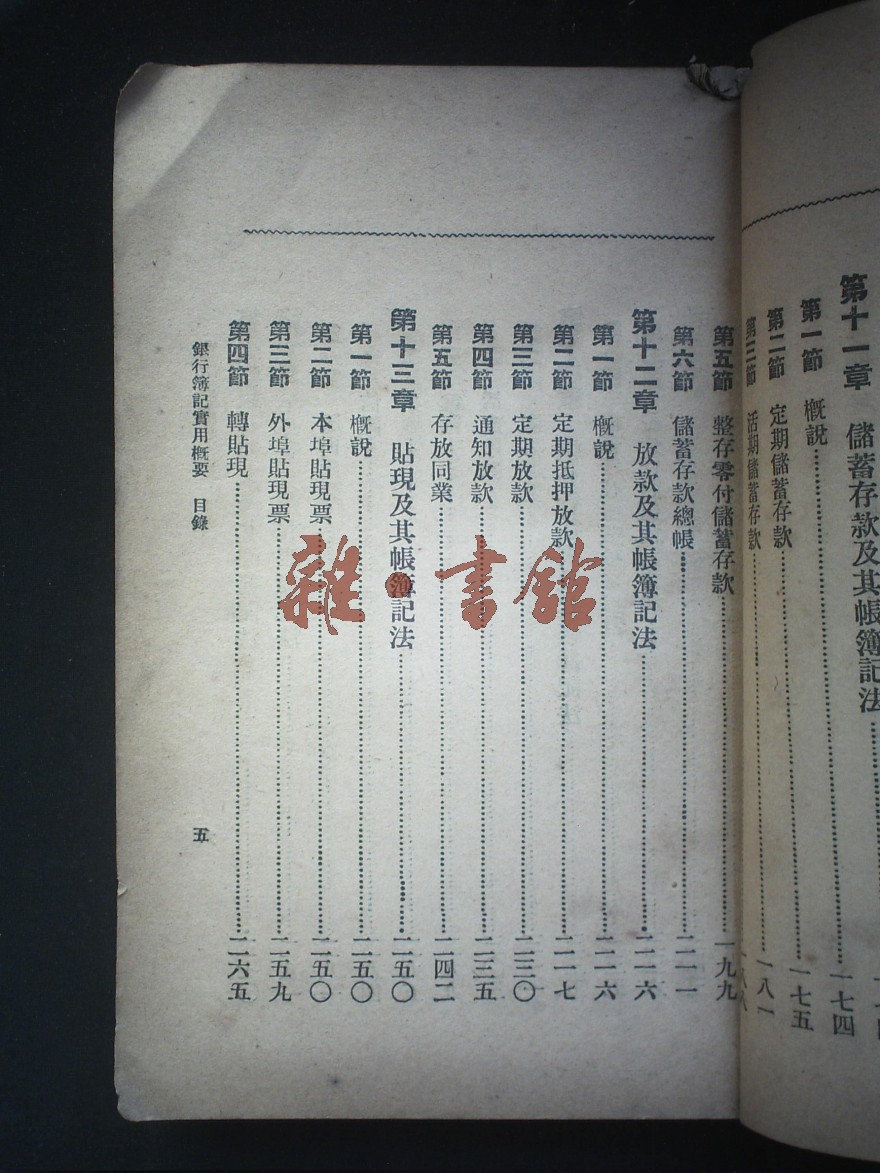 第十一章 儲蓄存款及其帳簿記法
第一節 概說……一七四
第二節 定期儲蓄存款……一七五
第三節 活期儲蓄存款……一八一
第五節 整存零付儲蓄存款……一九九
第六節 儲蓄存款總帳……二一一
第十二章 放款及其帳簿記法……二一六
第一節 概說……二一六
第二節 定期抵押放款……二一七
第三節 定期放款……二三〇
第四節 通知放款……二三五
第五節 存放同業……二四二
第十三章 貼現及其帳簿記法……二五〇
第一節 概說……二五〇
第二節 本埠貼現票……二五〇
第三節 外埠貼現票……二五九
第四節 轉貼現……二六五
銀行簿記實用概要 目錄
五
雜·書館